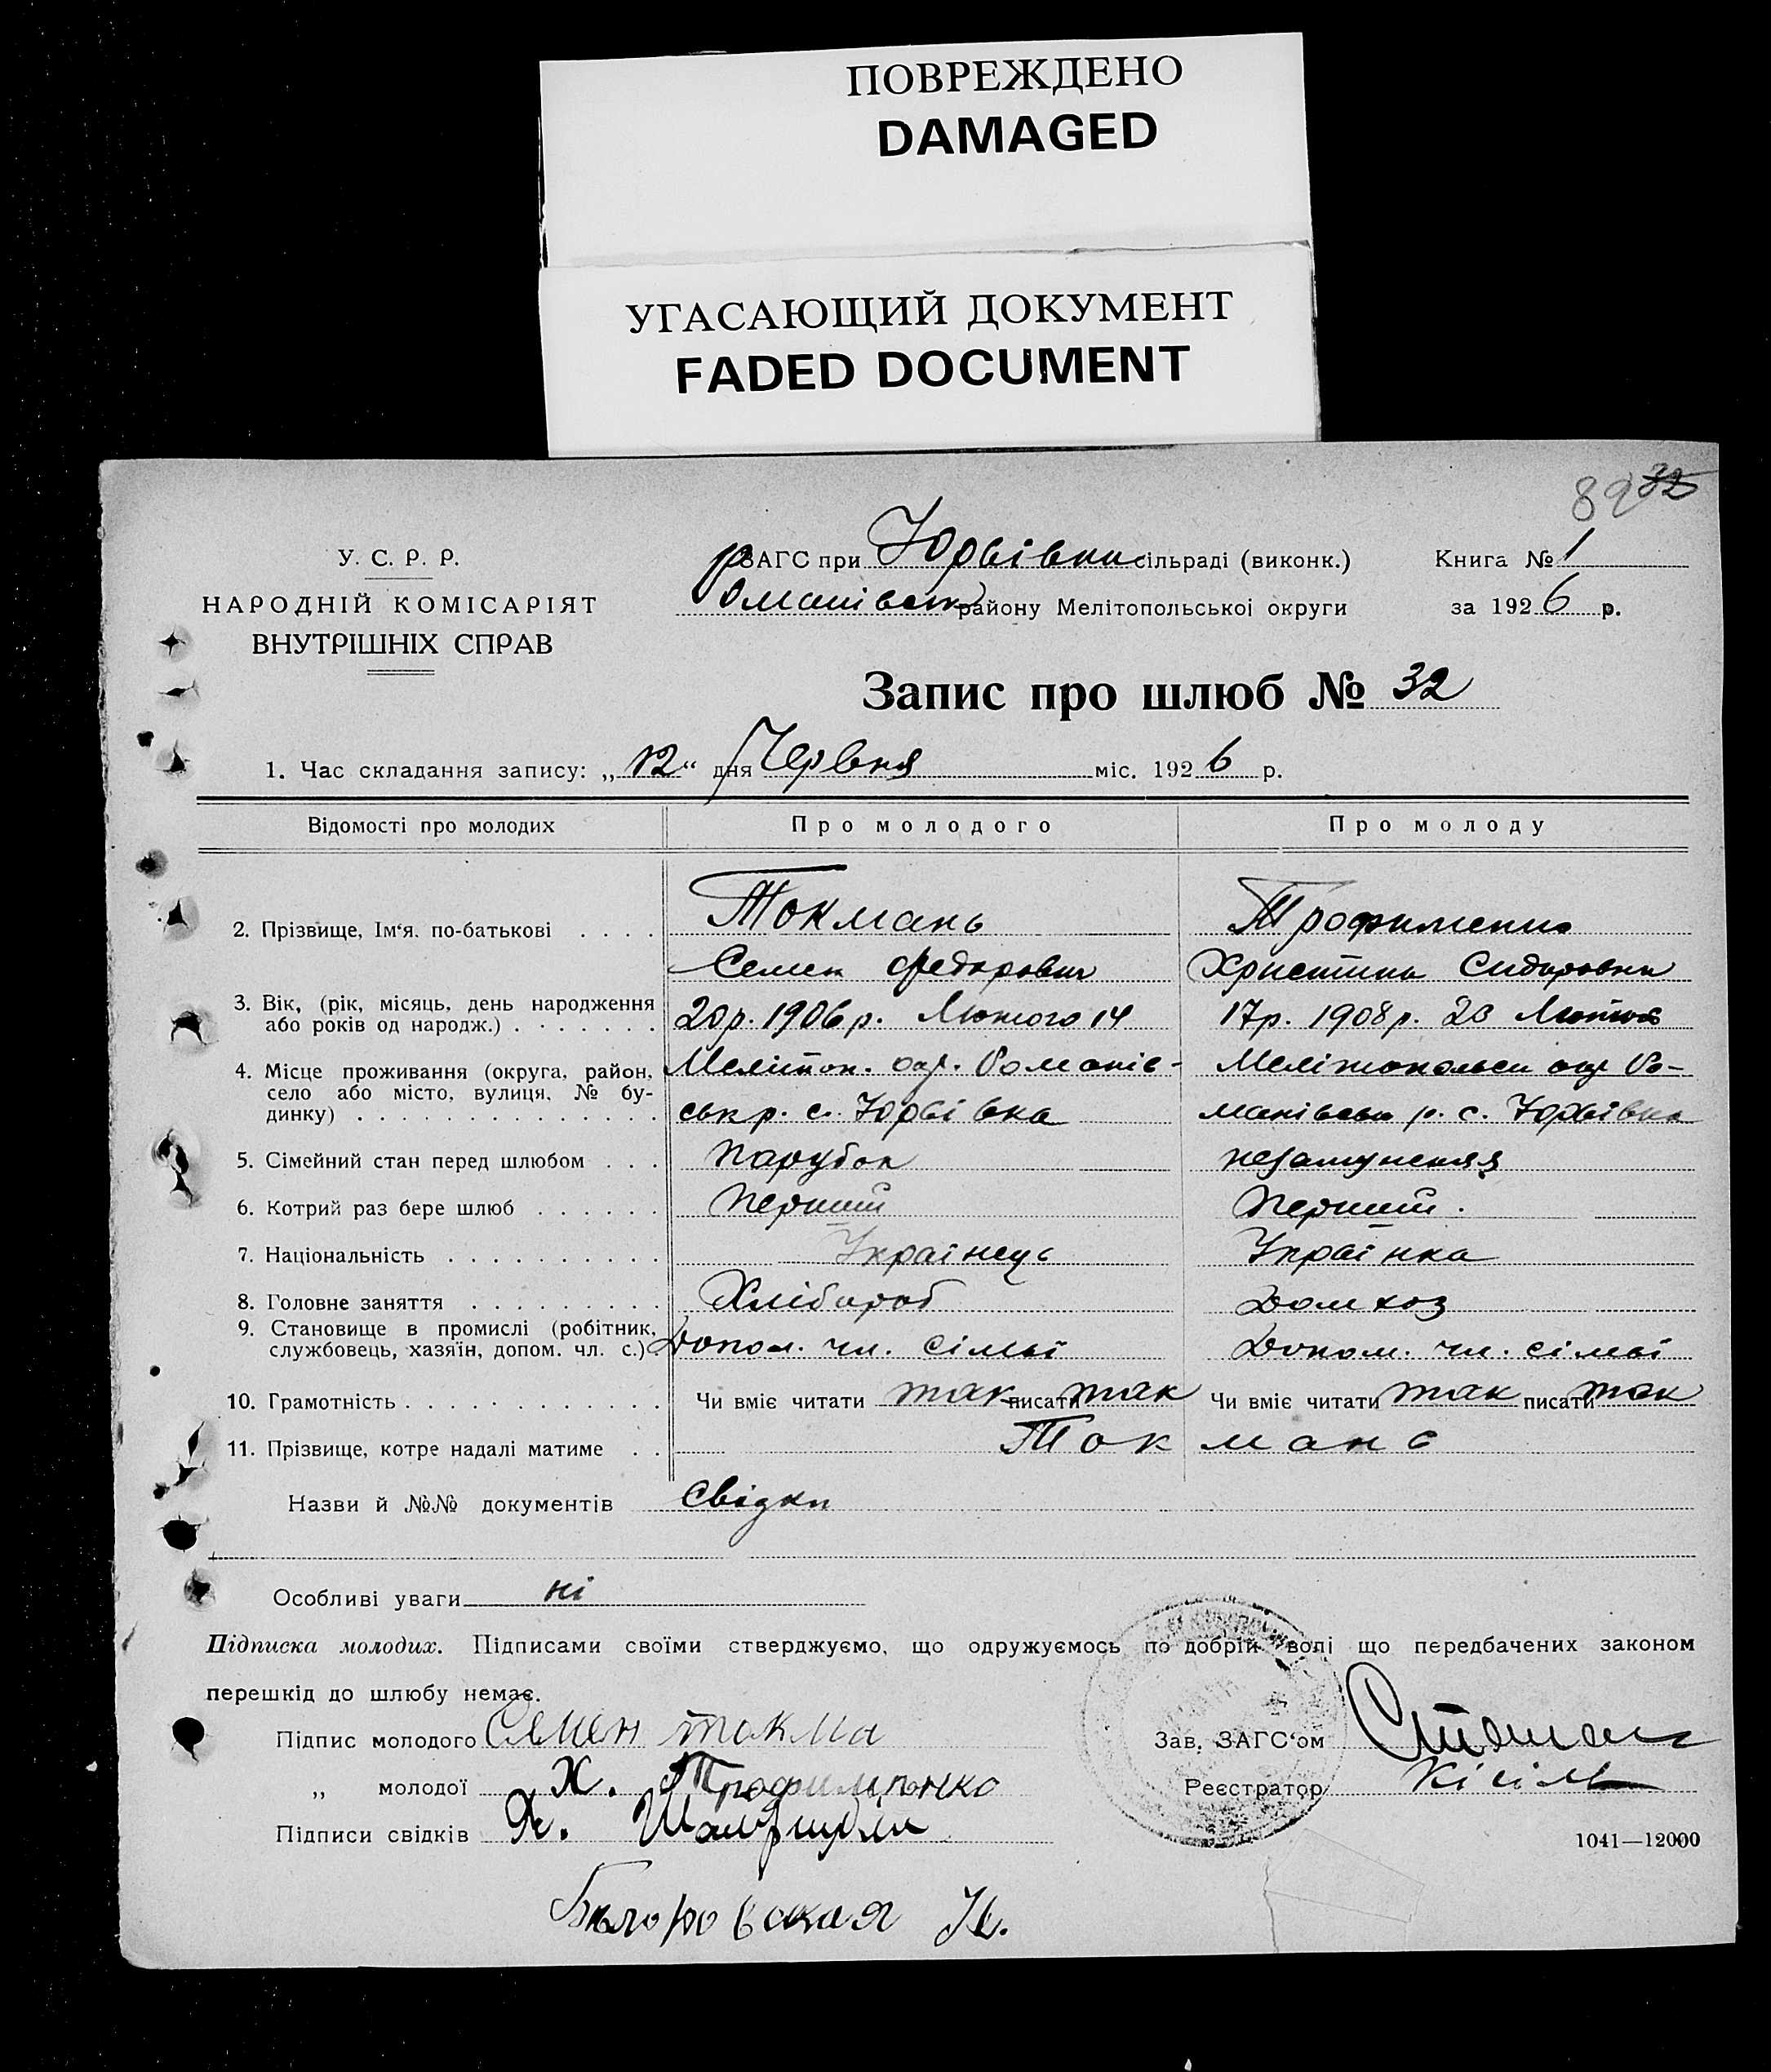 ПОВРЕЖДЕНО
DAMAGED
УГАСАЮЩИЙ ДОКУМЕНТ
FADED DOCUMENT
89 32
У. С. Р. Р.
НАРОДНІЙ КОМІСАРІЯТ
ВНУТРІШНІХ СПРАВ
рЗАГС при Юрвівки сільраді (виконк.)
Романівськ району Мелітопольської округи
Книга № 1
за 1926 р.
Запис про шлюб № 32
1. Час складання запису: „12“ дня Червня міс. 1926 р.
Відомості про молодих Про молодого Про молоду
2. Прізвище, Ім‘я, по-батькові . . . . Токмань Трофименко
Семен Федорович Христина Сидоровна
3. Вік, (рік, місяць, день народження або років од народж.) . . . . . . . 20 р. 1906 р. Лютого 14 17 р. 1908 р. 23 Лютого
4. Місце проживання (округа, район, Мелітоп. окр. Романів- Мелітопольськ окр Ро-
село або місто, вулиця, № бу-
динку) . . . . . . . . . . . . . . ськ р. с. Юрвівка манівськ р. с. Юрвівка
5. Сімейний стан перед шлюбом . . . Парубок незамужняя
6. Котрий раз бере шлюб . . . . . . Перший Перший.
7. Національність . . . . . . . . . . Українець Українка
8. Головне заняття . . . . . . . . . Хлібороб Домхоз
9. Становище в промислі (робітник,
службовець, хазяїн, допом. чл. с.) . Допом. чл. сімьї Допом. чл. сімьї
10. Грамотність . . . . . . . . . . . . Чи вміє читати так писати так Чи вміє читати так писати так
11. Прізвище, котре надалі матиме . . Токмань
Назви й №№ документів Свідки
Особливі уваги ні
Підписка молодих. Підписами своїми стверджуємо, що одружуємось по добрій волі що передбачених законом
перешкід до шлюбу немає.
Підпис молодого Семен токма
Зав. ЗАГС‘ом
„ молодої Х. Трофименко
Реєстратор Кісіль
Підписи свідків
1041—12000